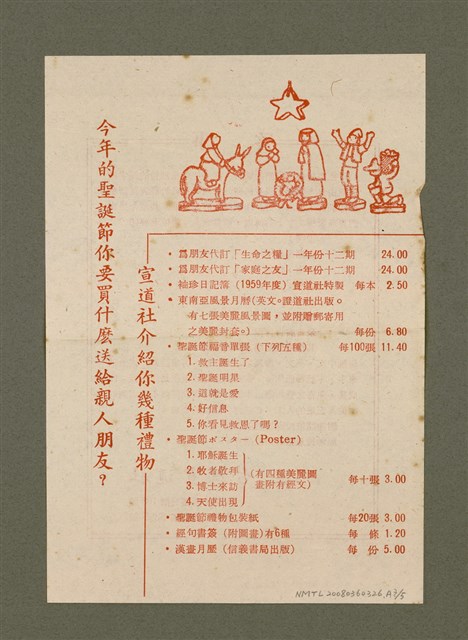 今年的聖誕節你要買什麽送給親人朋友？
宣道社介紹你幾種禮物
• 爲朋友代訂「生命之糧」一年份十二期 24.00
• 爲朋友代訂「家庭之友」一年份十二期 24.00
• 袖珍日記簿 (1959年度) 宣道社特製 每本 2.50
• 東南亞風景月曆(英文。證道社出版。
有七張美麗風景圖，並附贈郵寄用
之美麗封套。) 每份 6.80
• 聖誕節福音單張 (下列五種) 每100張 11.40
1. 救主誕生了
2. 聖誕明星
3. 這就是愛
4. 好信息
5. 你看見救恩了嗎？
• 聖誕節ポスター (Poster)
1. 耶穌誕生
2. 牧者敬拜
3. 博士來訪
4. 天使出現
(有四種美麗圖
畫附有經文)
每十張 3.00
• 聖誕節禮物包裝紙 每20張 3.00
• 經句書簽 (附圖畫)有6種 每條 1.20
• 漢畫月曆 (信義書局出版) 每份 5.00
NMTL20080350326.A 3/5